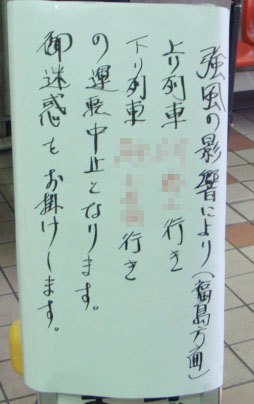 強風の影響により(福島方面)
上り列車 行き
下り列車 行き
の運転中止となります。
御迷惑をお掛けします。